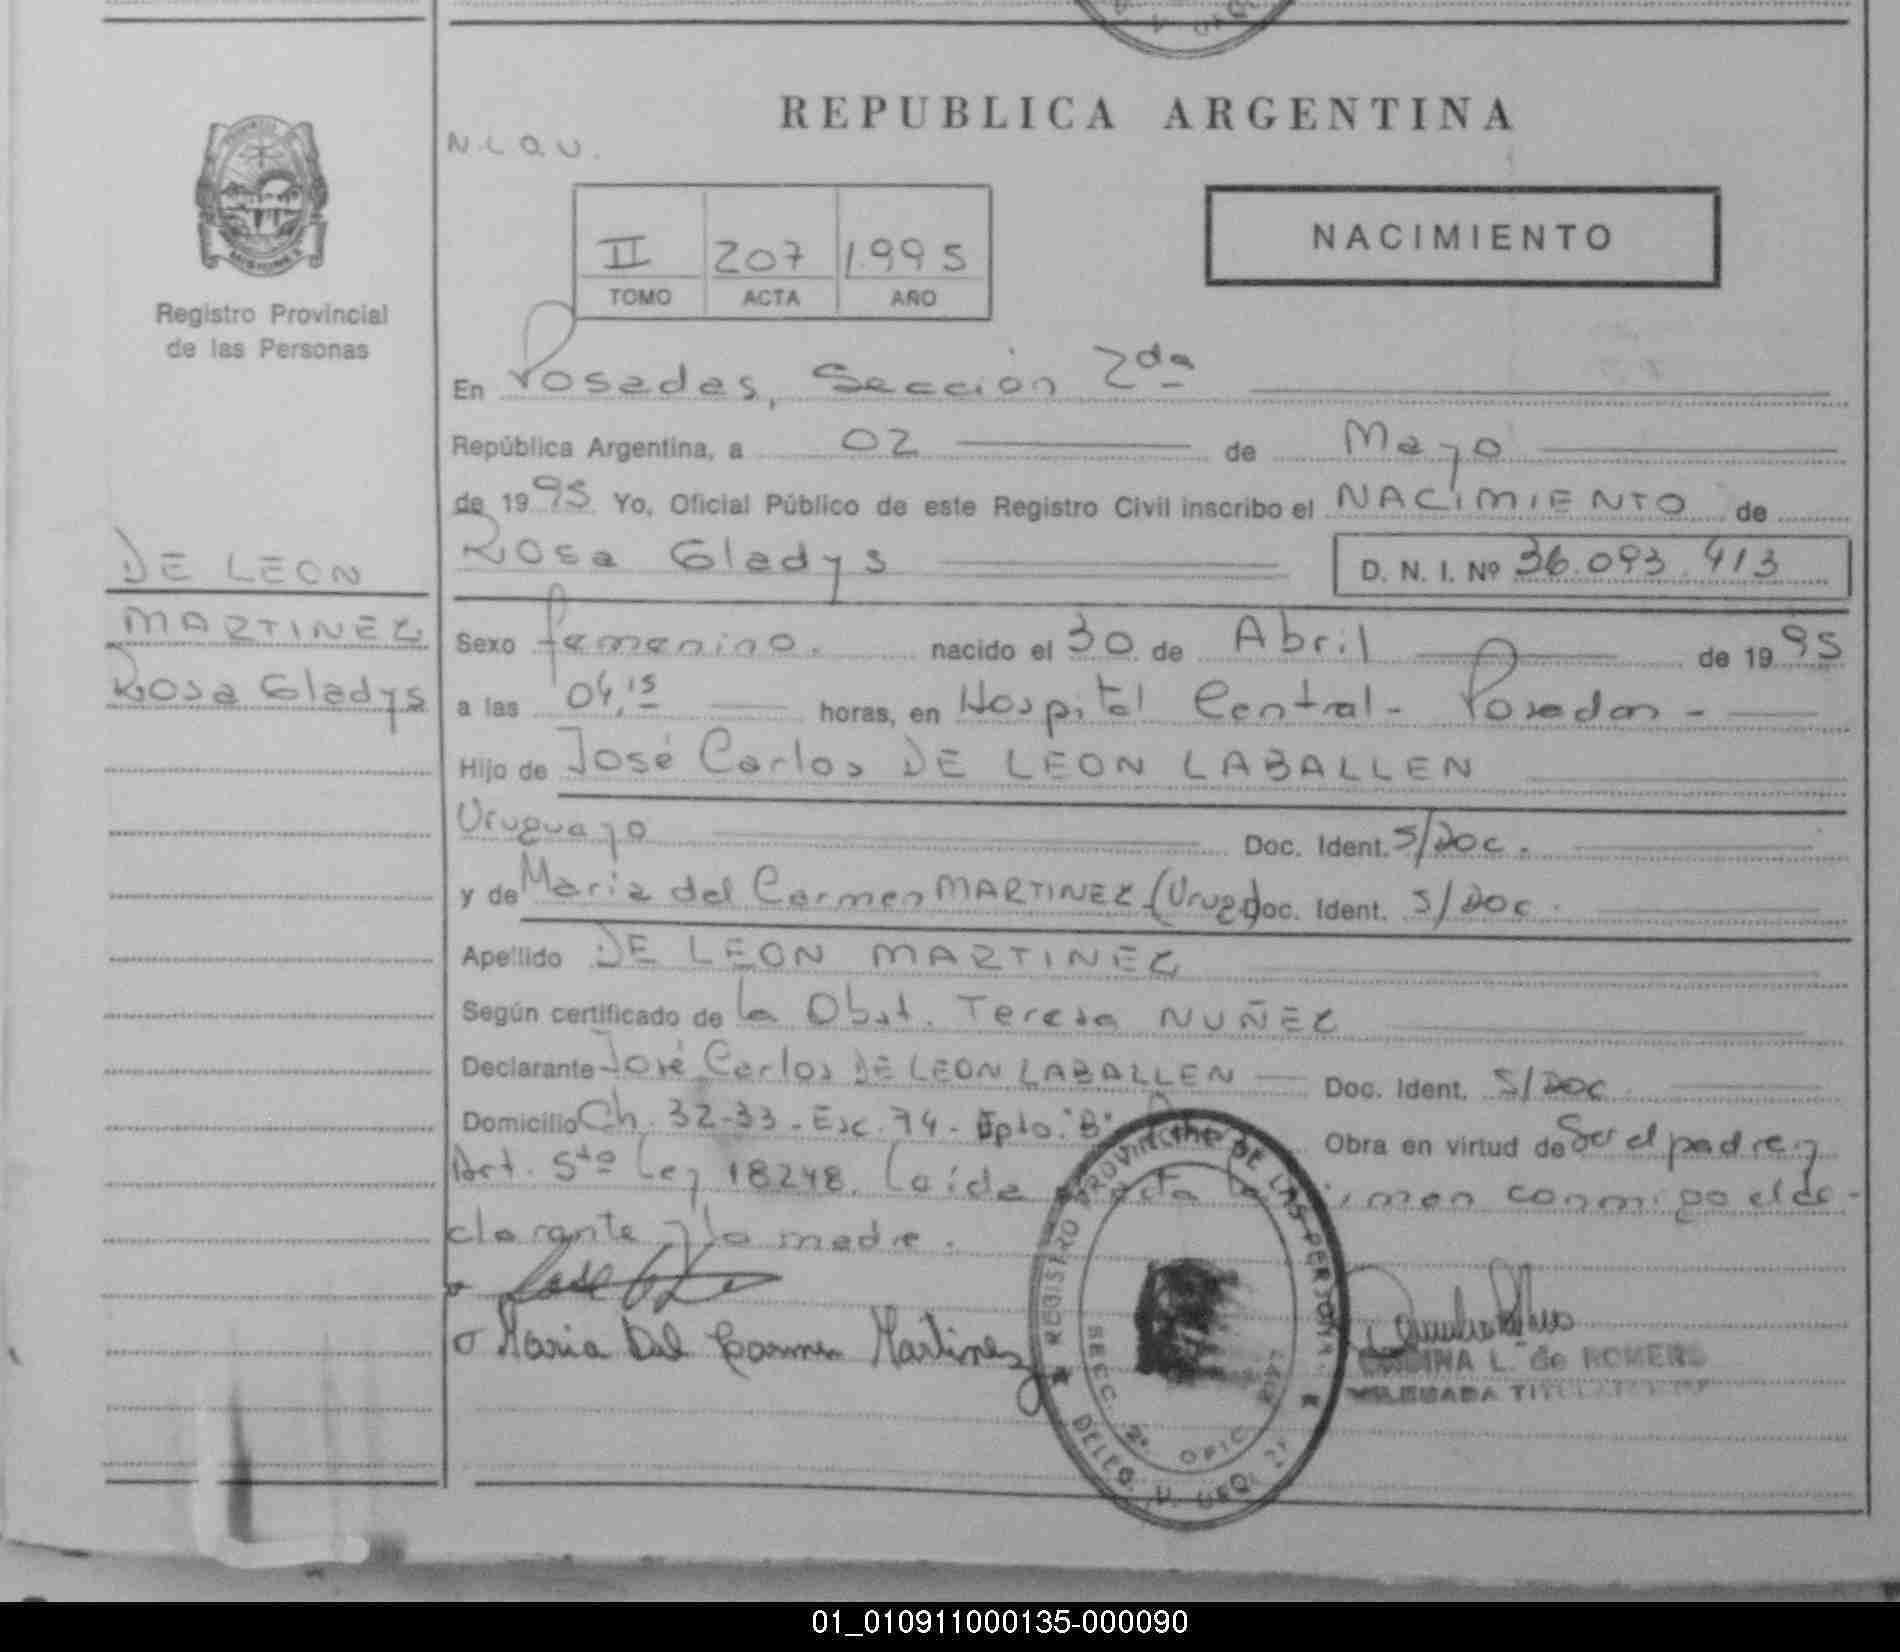 REPUBLICA ARGENTINA
N.L.Q.U.
NACIMIENTO
II 207 1995
TOMO ACTA AÑO
MISIONES
Registro Provincial
de las Personas
DE LEON
MARTINEZ
Rosa Gladys
En Posadas, Sección 2da
República Argentina, a 02 de Mayo
de 1995 Yo, Oficial Público de este Registro Civil inscribo el NACIMIENTO de
Rosa Gladys D. N. I. Nº 36.093.413
Sexo femenino. nacido el 30 de Abril de 1995
a las 04,15 horas, en Hospital Central - Posadas -
Hijo de José Carlos DE LEON LABALLEN
Uruguayo Doc. Ident. S/Doc.
y de Maria del Carmen MARTINEZ (Urug) Doc. Ident. S/Doc.
Apellido DE LEON MARTINEZ
Según certificado de la Obst. Teresa NUÑEZ
Declarante José Carlos DE LEON LABALLEN Doc. Ident. S/Doc.
Domicilio Ch. 32-33. Esc. 74 - Dpto. "B" Obra en virtud de Ser el padre y
Art. 5to Ley 18248. Leída el acta la firman conmigo el de-
clarante y la madre.
Maria Del Carmen Martinez
REGISTRO PROVINCIAL DE LAS PERSONAS
SECC. 2ª OFIC.
L. de ROMERO
DELEGADA TITULAR
01_010911000135-000090